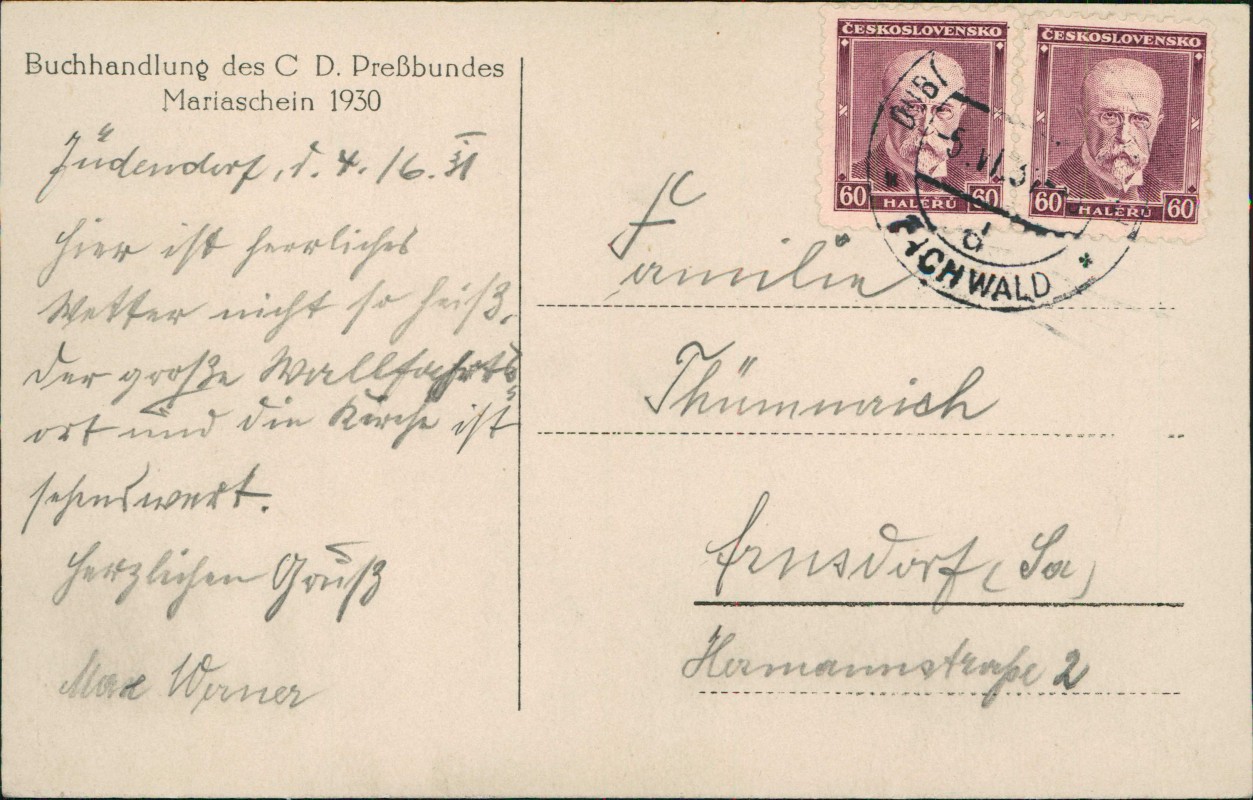 Buchhandlung des C D. Preßbundes
Mariaschein 1930
Jüdendorf, d. 4./6. 31
Hier ist herrliches
Wetter nicht so heiß.
Der große Wallfahrts
ort und die Kirche ist
sehenswert.
Herzlichen Gruß
Max Werner
ČESKOSLOVENSKO
60 HALÉRŮ 60
ČESKOSLOVENSKO
60 HALÉRŮ 60
DUBÍ
5.VI.31
d
EICHWALD
Familie
Thümmrich
Arnsdorf, (Sa)
Hermannstraße 2